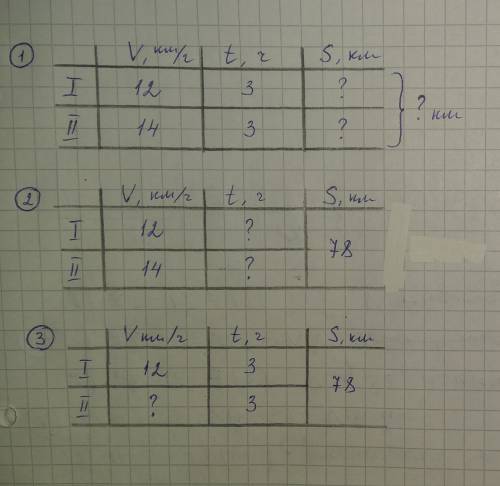 1 V, км/ч t, ч S, км
I 12 3 ?
II 14 3 ?
? км
2 V, км/ч t, ч S, км
I 12 ? 78
II 14 ?
3 V км/ч t, ч S, км
I 12 3 78
II ? 3